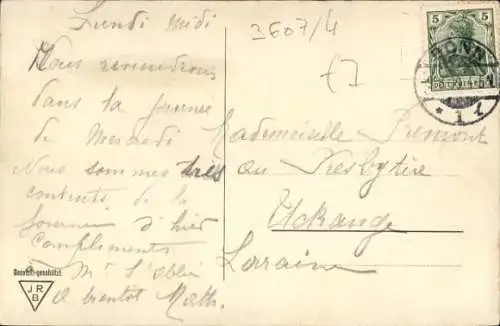 Lundi midi
Nous reviendrons
dans la journée
de Mercredi
Nous sommes très
contents de la
journée d'hier
Compliments
à Mr l'abbé
A bientôt Math.
3607/4
£7
5 5
BONN
Mademoiselle Premont
au Presbytère
Uckange
Lorraine
Gesetzl. geschützt
JR
B